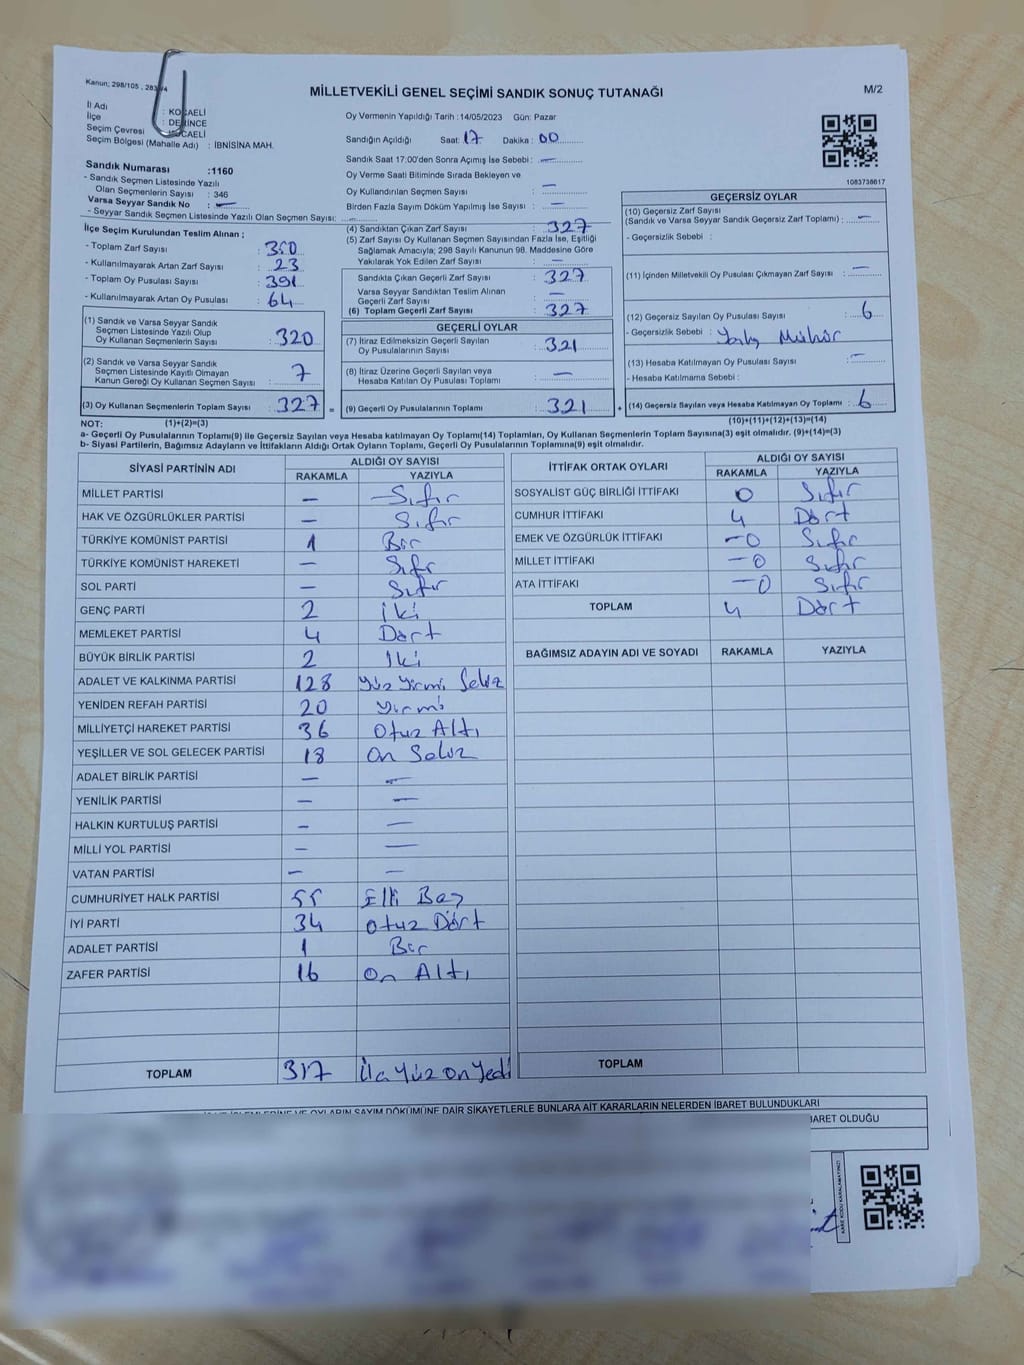 Kanun; 298/105 , 283
M/2
MİLLETVEKİLİ GENEL SEÇİMİ SANDIK SONUÇ TUTANAĞI
İl Adı : KOCAELİ
İlçe : DERİNCE
Seçim Çevresi : KOCAELİ
Seçim Bölgesi (Mahalle Adı) : İBNİSİNA MAH.
Oy Vermenin Yapıldığı Tarih :14/05/2023 Gün: Pazar
Sandığın Açıldığı Saat: 17 Dakika : 00
Sandık Saat 17:00'den Sonra Açımış İse Sebebi : —
Oy Verme Saati Bitiminde Sırada Bekleyen ve
Oy Kullandırılan Seçmen Sayısı —
Birden Fazla Sayım Döküm Yapılmış İse Sayısı : —
1083738617
Sandık Numarası :1160
- Sandık Seçmen Listesinde Yazılı
Olan Seçmenlerin Sayısı : 346
Varsa Seyyar Sandık No : —
- Seyyar Sandık Seçmen Listesinde Yazılı Olan Seçmen Sayısı:
İlçe Seçim Kurulundan Teslim Alınan ;
- Toplam Zarf Sayısı : 350
- Kullanılmayarak Artan Zarf Sayısı : 23
- Toplam Oy Pusulası Sayısı : 391
- Kullanılmayarak Artan Oy Pusulası : 64
(1) Sandık ve Varsa Seyyar Sandık
Seçmen Listesinde Yazılı Olup
Oy Kullanan Seçmenlerin Sayısı : 320
(2) Sandık ve Varsa Seyyar Sandık
Seçmen Listesinde Kayıtlı Olmayan
Kanun Gereği Oy Kullanan Seçmen Sayısı : 7
(3) Oy Kullanan Seçmenlerin Toplam Sayısı : 327 =
(4) Sandıktan Çıkan Zarf Sayısı : 327
(5) Zarf Sayısı Oy Kullanan Seçmen Sayısından Fazla İse, Eşitliği
Sağlamak Amacıyla; 298 Sayılı Kanunun 98. Maddesine Göre
Yakılarak Yok Edilen Zarf Sayısı : —
Sandıkta Çıkan Geçerli Zarf Sayısı : 327
Varsa Seyyar Sandıktan Teslim Alınan
Geçerli Zarf Sayısı : —
(6) Toplam Geçerli Zarf Sayısı : 327
GEÇERLİ OYLAR
(7) İtiraz Edilmeksizin Geçerli Sayılan
Oy Pusulalarının Sayısı : 321
(8) İtiraz Üzerine Geçerli Sayılan veya
Hesaba Katılan Oy Pusulası Toplamı : —
(9) Geçerli Oy Pusulalarının Toplamı : 321 +
GEÇERSİZ OYLAR
(10) Geçersiz Zarf Sayısı
(Sandık ve Varsa Seyyar Sandık Geçersiz Zarf Toplamı) : —
- Geçersizlik Sebebi :
(11) İçinden Milletvekili Oy Pusulası Çıkmayan Zarf Sayısı : —
(12) Geçersiz Sayılan Oy Pusulası Sayısı : 6
- Geçersizlik Sebebi : Mühür
(13) Hesaba Katılmayan Oy Pusulası Sayısı : —
- Hesaba Katılmama Sebebi :
(14) Geçersiz Sayılan veya Hesaba Katılmayan Oy Toplamı : 6
NOT: (1)+(2)=(3) (10)+(11)+(12)+(13)=(14)
a- Geçerli Oy Pusulalarının Toplam(9) ile Geçersiz Sayılan veya Hesaba katılmayan Oy Toplamı(14) Toplamları, Oy Kullanan Seçmenlerin Toplam Sayısına(3) eşit olmalıdır. (9)+(14)=(3)
b- Siyasi Partilerin, Bağımsız Adayların ve İttifakların Aldığı Ortak Oyların Toplamı, Geçerli Oy Pusulalarının Toplamına(9) eşit olmalıdır.
SİYASİ PARTİNİN ADI ALDIĞI OY SAYISI
RAKAMLA YAZIYLA
MİLLET PARTİSİ — Sıfır
HAK VE ÖZGÜRLÜKLER PARTİSİ — Sıfır
TÜRKİYE KOMÜNİST PARTİSİ 1 Bir
TÜRKİYE KOMÜNİST HAREKETİ — Sıfır
SOL PARTİ — Sıfır
GENÇ PARTİ 2 iki
MEMLEKET PARTİSİ 4 Dört
BÜYÜK BİRLİK PARTİSİ 2 İki
ADALET VE KALKINMA PARTİSİ 128 Yüz Yirmi Sekiz
YENİDEN REFAH PARTİSİ 20 Yirmi
MİLLİYETÇİ HAREKET PARTİSİ 36 Otuz Altı
YEŞİLLER VE SOL GELECEK PARTİSİ 18 On Sekiz
ADALET BİRLİK PARTİSİ — —
YENİLİK PARTİSİ — —
HALKIN KURTULUŞ PARTİSİ — —
MİLLİ YOL PARTİSİ — —
VATAN PARTİSİ — —
CUMHURİYET HALK PARTİSİ 55 Elli Beş
İYİ PARTİ 34 Otuz Dört
ADALET PARTİSİ 1 Bir
ZAFER PARTİSİ 16 On Altı
TOPLAM 317 Üç Yüz On Yedi
İTTİFAK ORTAK OYLARI ALDIĞI OY SAYISI
RAKAMLA YAZIYLA
SOSYALİST GÜÇ BİRLİĞİ İTTİFAKI 0 Sıfır
CUMHUR İTTİFAKI 4 Dört
EMEK VE ÖZGÜRLÜK İTTİFAKI —0 Sıfır
MİLLET İTTİFAKI —0 Sıfır
ATA İTTİFAKI —0 Sıfır
TOPLAM 4 Dört
BAĞIMSIZ ADAYIN ADI VE SOYADI RAKAMLA YAZIYLA
TOPLAM
VE OYLARIN SAYIM DÖKÜMÜNE DAİR ŞİKAYETLERLE BUNLARA AİT KARARLARIN NELERDEN İBARET BULUNDUKLARI
BARET OLDUĞU
KARE KODU KARALAMAYINIZ!